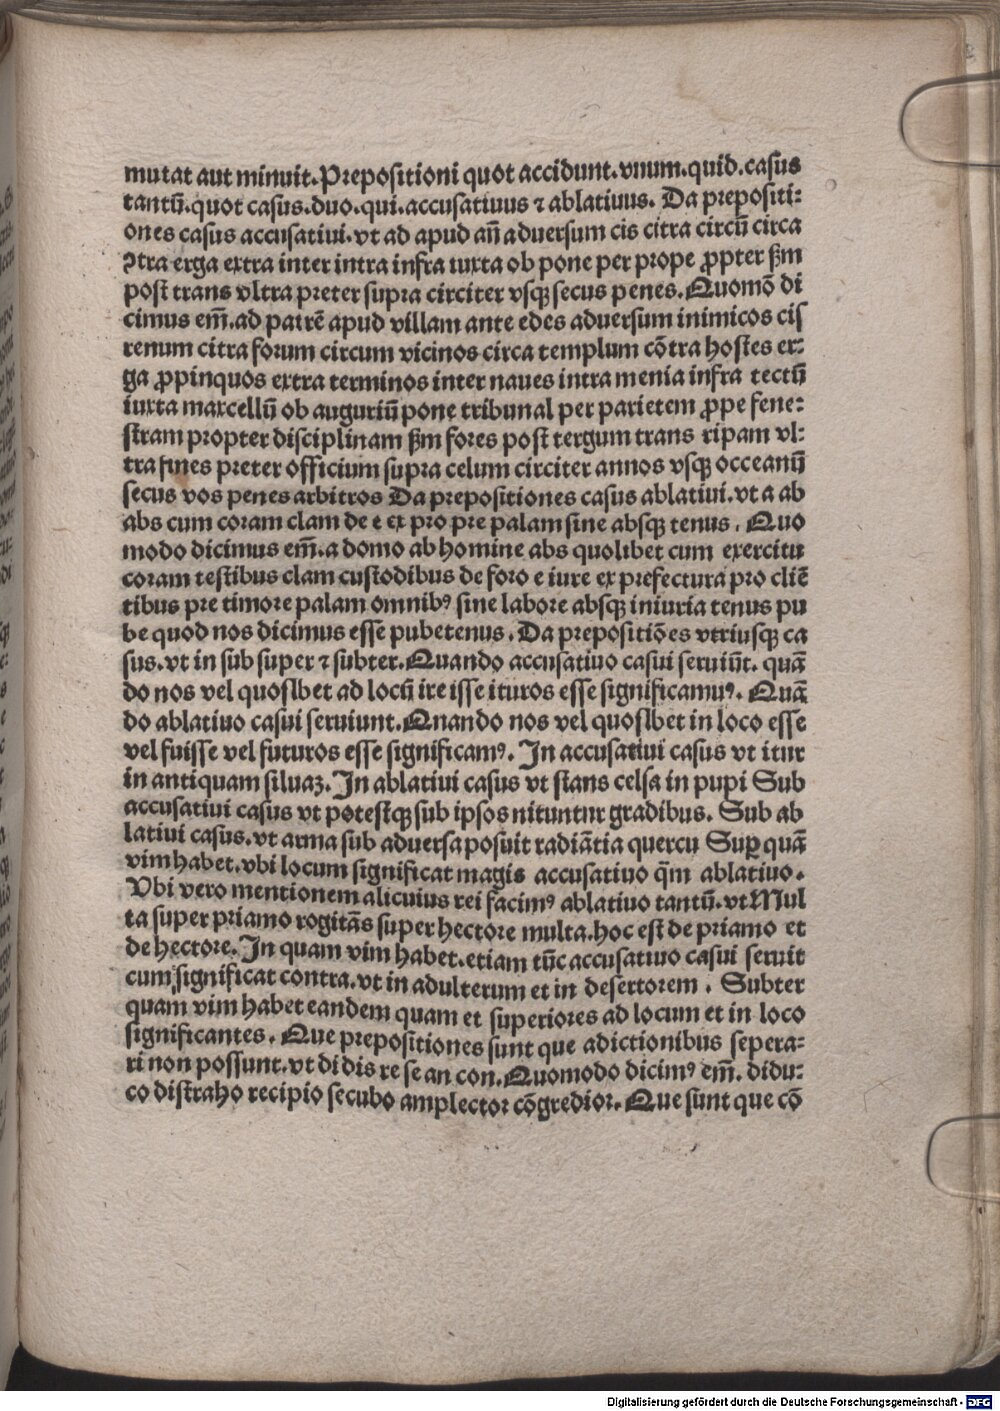 mutat aut minuit. Prepositioni quot accidunt. vnum. quid. casus
tantū. quot casus. duo. qui. accusatiuus ⁊ ablatiuus. Da prepositi⸗
ones casus accusatiui. vt ad apud añ aduersum cis citra circū circa
ꝯtra erga extra inter intra infra iuxta ob pone per prope ꝓpter ẜm
post trans vltra preter supra circiter vsqꝫ secus penes. Quomō di
cimus em̄. ad patrē apud villam ante edes aduersum inimicos cis
renum citra forum circum vicinos circa templum cōtra hostes er⸗
ga ꝓpinquos extra terminos inter naues intra menia infra tectū
iuxta marcellū ob auguriū pone tribunal per parietem ꝓpe fene⸗
stram propter disciplinam ẜm fores post tergum trans ripam vl⸗
tra fines preter officium supra celum circiter annos vsqꝫ occeanū
secus vos penes arbitros Da prepositiones casus ablatiui. vt a ab
abs cum coram clam de e ex pro pre palam sine absqꝫ tenus. Quo
modo dicimus em̄. a domo ab homine abs quolibet cum exercitu
coram testibus clam custodibus de foro e iure ex prefectura pro cliē
tibus pre timore palam omnibꝰ sine labore absqꝫ iniuria tenus pu
be quod nos dicimus esse pubetenus. Da prepositiōes vtriusqꝫ ca
sus. vt in sub super ⁊ subter. Quando accusatiuo casui seruiūt. quā
do nos vel quoslbet ad locū ire isse ituros esse significamuꝰ. Quā
do ablatiuo casui seruiunt. Qnando nos vel quoslbet in loco esse
vel fuisse vel futuros esse significamꝰ. In accusatiui casus vt itur
in antiquam siluaꝫ. In ablatiui casus vt stans celsa in pupi Sub
accusatiui casus vt potestqꝫ sub ipsos nituntur gradibus. Sub ab
latiui casus. vt arma sub aduersa posuit radiātia quercu Suꝑ quā
vim habet. vbi locum significat magis accusatiuo q̄m ablatiuo.
Vbi vero mentionem alicuius rei facimꝰ ablatiuo tantū. vt Mul
ta super priamo rogitās super hectore multa. hoc est de priamo et
de hectore. In quam vim habet. etiam tūc accusatiuo casui seruit
cum significat contra. vt in adulterum et in desertorem. Subter
quam vim habet eandem quam et superiores ad locum et in loco
significantes. Que prepositiones sunt que adictionibus sepera⸗
ri non possunt. vt di dis re se an con. Quomodo dicimꝰ em̄. didu⸗
co distraho recipio secubo amplector cōgredior. Que sunt que cō
Digitalisierung gefördert durch die Deutsche Forschungsgemeinschaft - DFG